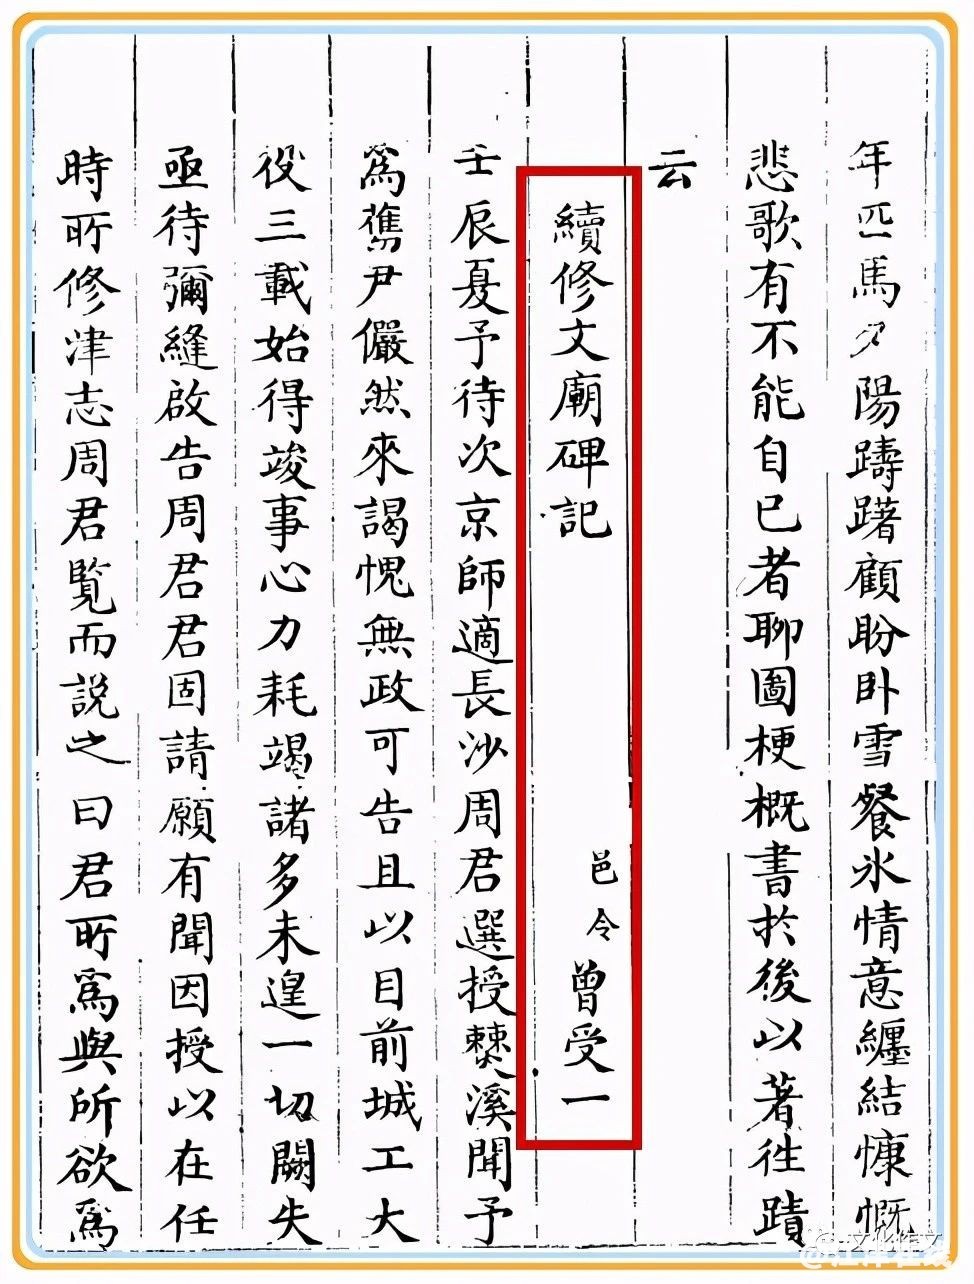 年匹馬夕陽躊躇顧盼卧雪餐氷情意纏結慷慨
悲歌有不能自已者聊圖梗概書於後以著徃蹟
云
續修文廟碑記 邑令曾受一
壬辰夏予待次京師適長沙周君選授僰溪聞予
爲舊尹儼然來謁愧無政可告且以目前城工大
役三載始得竣事心力耗竭諸多未遑一切闕失
亟待彌縫啟告周君君固請願有聞因授以在任
時所修津志周君覧而說之曰君所爲與所欲爲